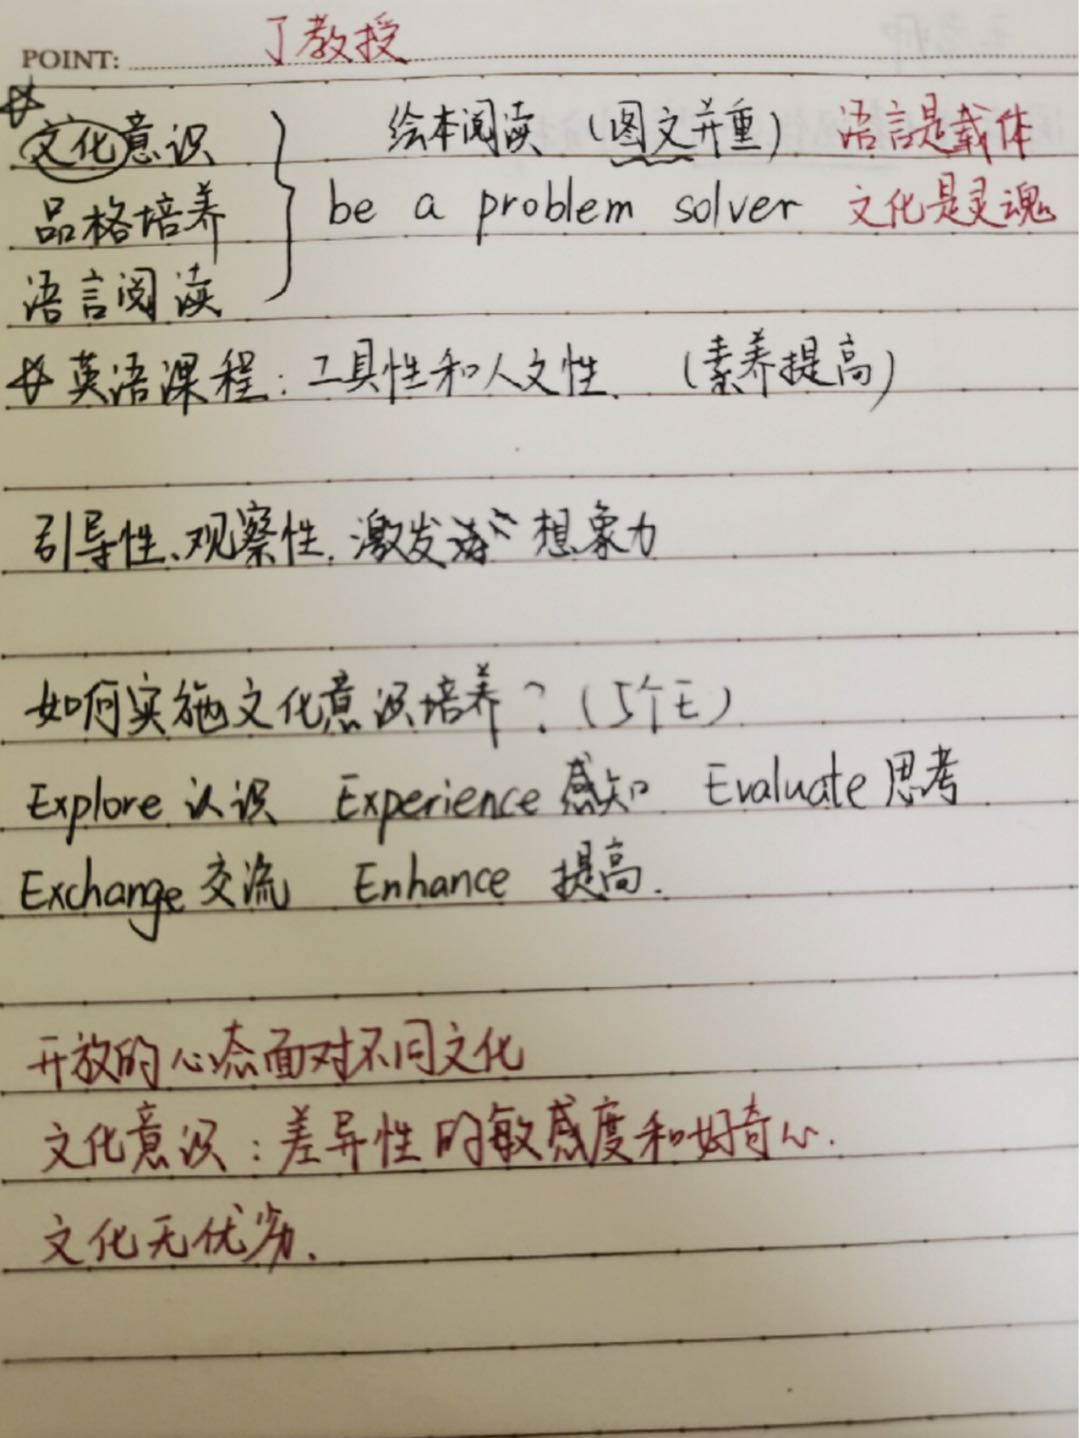 POINT: 丁教授
文化意识 绘本阅读（图文并重） 语言是载体
品格培养 be a problem solver 文化是灵魂
语言阅读
英语课程：工具性和人文性. （素养提高）
引导性、观察性, 激发 想象力
如何实施文化意识培养？（5个E）
Explore 认识 Experience 感知 Evaluate 思考
Exchange 交流 Enhance 提高.
开放的心态面对不同文化
文化意识：差异性的敏感度和好奇心.
文化无优劣.